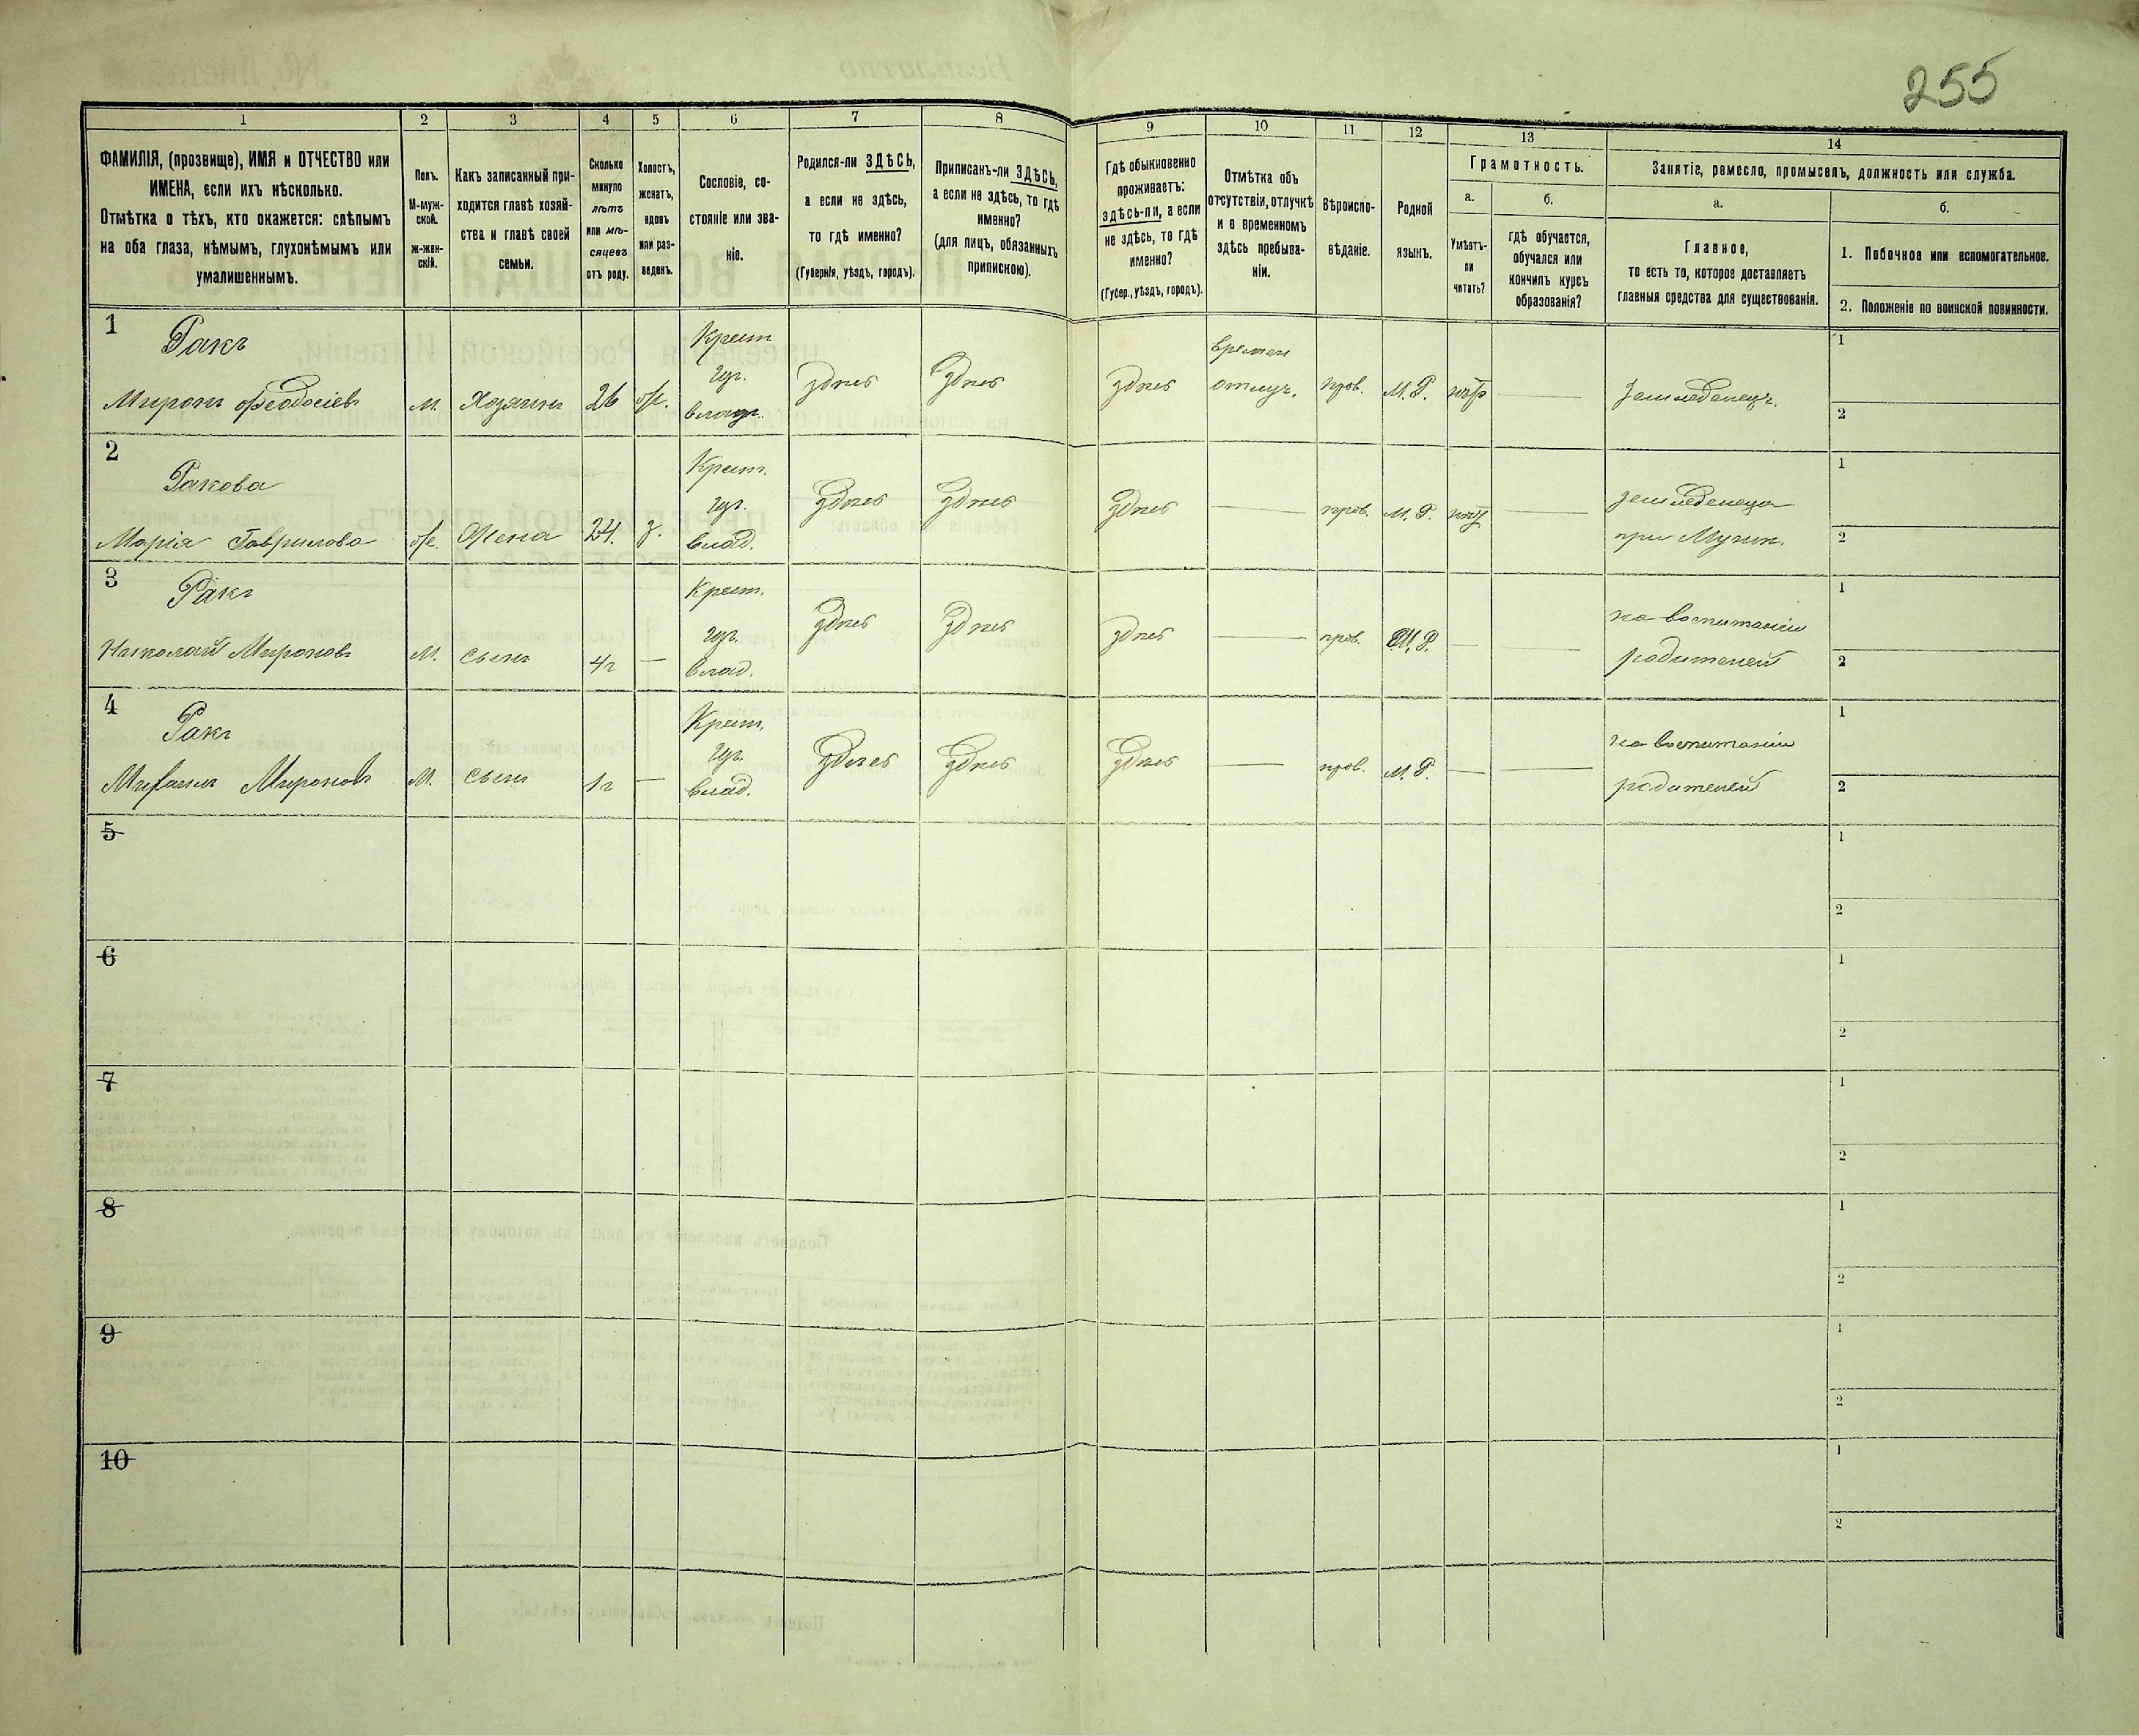 255
1 2 3 4 5 6 7 8 9 10 11 12 13 14
ФАМИЛІЯ, (прозвище), ИМЯ и ОТЧЕСТВО или
ИМЕНА, если ихъ нѣсколько.
Отмѣтка о тѣхъ, кто окажется: слѣпымъ
на оба глаза, нѣмымъ, глухонѣмымъ или
умалишеннымъ.
Полъ.
М-муж-
ской.
ж-жен-
скій.
Какъ записанный при-
ходится главѣ хозяй-
ства и главѣ своей
семьи.
Сколько
минуло
лѣтъ
или мѣ-
сяцевъ
отъ роду.
Холостъ,
женатъ,
вдовъ
или раз-
веденъ.
Сословіе, со-
стояніе или зва-
ніе.
Родился-ли ЗДѢСЬ,
а если не здѣсь,
то гдѣ именно?
(Губернія, уѣздъ, городъ).
Приписанъ-ли ЗДѢСЬ,
а если не здѣсь, то гдѣ
именно?
(для лицъ, обязанныхъ
припискою).
Гдѣ обыкновенно
проживаетъ:
здѣсь-ли, а если
не здѣсь, то гдѣ
именно?
(Губер., уѣздъ, городъ).
Отмѣтка объ
отсутствіи, отлучкѣ
и о временномъ
здѣсь пребыва-
ніи.
Вѣроиспо-
вѣданіе.
Родной
языкъ.
Грамотность.
а.
Умѣетъ-
ли
читать?
б.
гдѣ обучается,
обучался или
кончилъ курсъ
образованія?
Занятіе, ремесло, промыселъ, должность или служба.
а.
Главное,
то есть то, которое доставляетъ
главныя средства для существованія.
б.
1. Побочное или вспомогательное.
2. Положеніе по воинской повинности.
1 Ракъ Крест. времен 1
Миронъ Феодосіевъ М. Хозяинъ 26 ж. здѣсь здѣсь здѣсь отлуч. прав. М.Р. Земледелецъ. 2
влад.
2 Ракова Крест. 1
Марія Гаврилова ж. Жена 24. з. здѣсь здѣсь здѣсь — прав. М.Р. — земледелецъ
влад. при Мужѣ. 2
3 Ракъ Крест. 1
Николай Мироновъ М. сынъ 4г — здѣсь здѣсь здѣсь — прав. М.Р. — — на воспитаніи
влад. родителей 2
4 Ракъ Крест. 1
Михаилъ Мироновъ М. сынъ 1г — здѣсь здѣсь здѣсь — прав. М.Р. — — на воспитаніи
влад. родителей 2
5 1
2
6 1
2
7 1
2
8 1
2
9 1
2
10 1
2